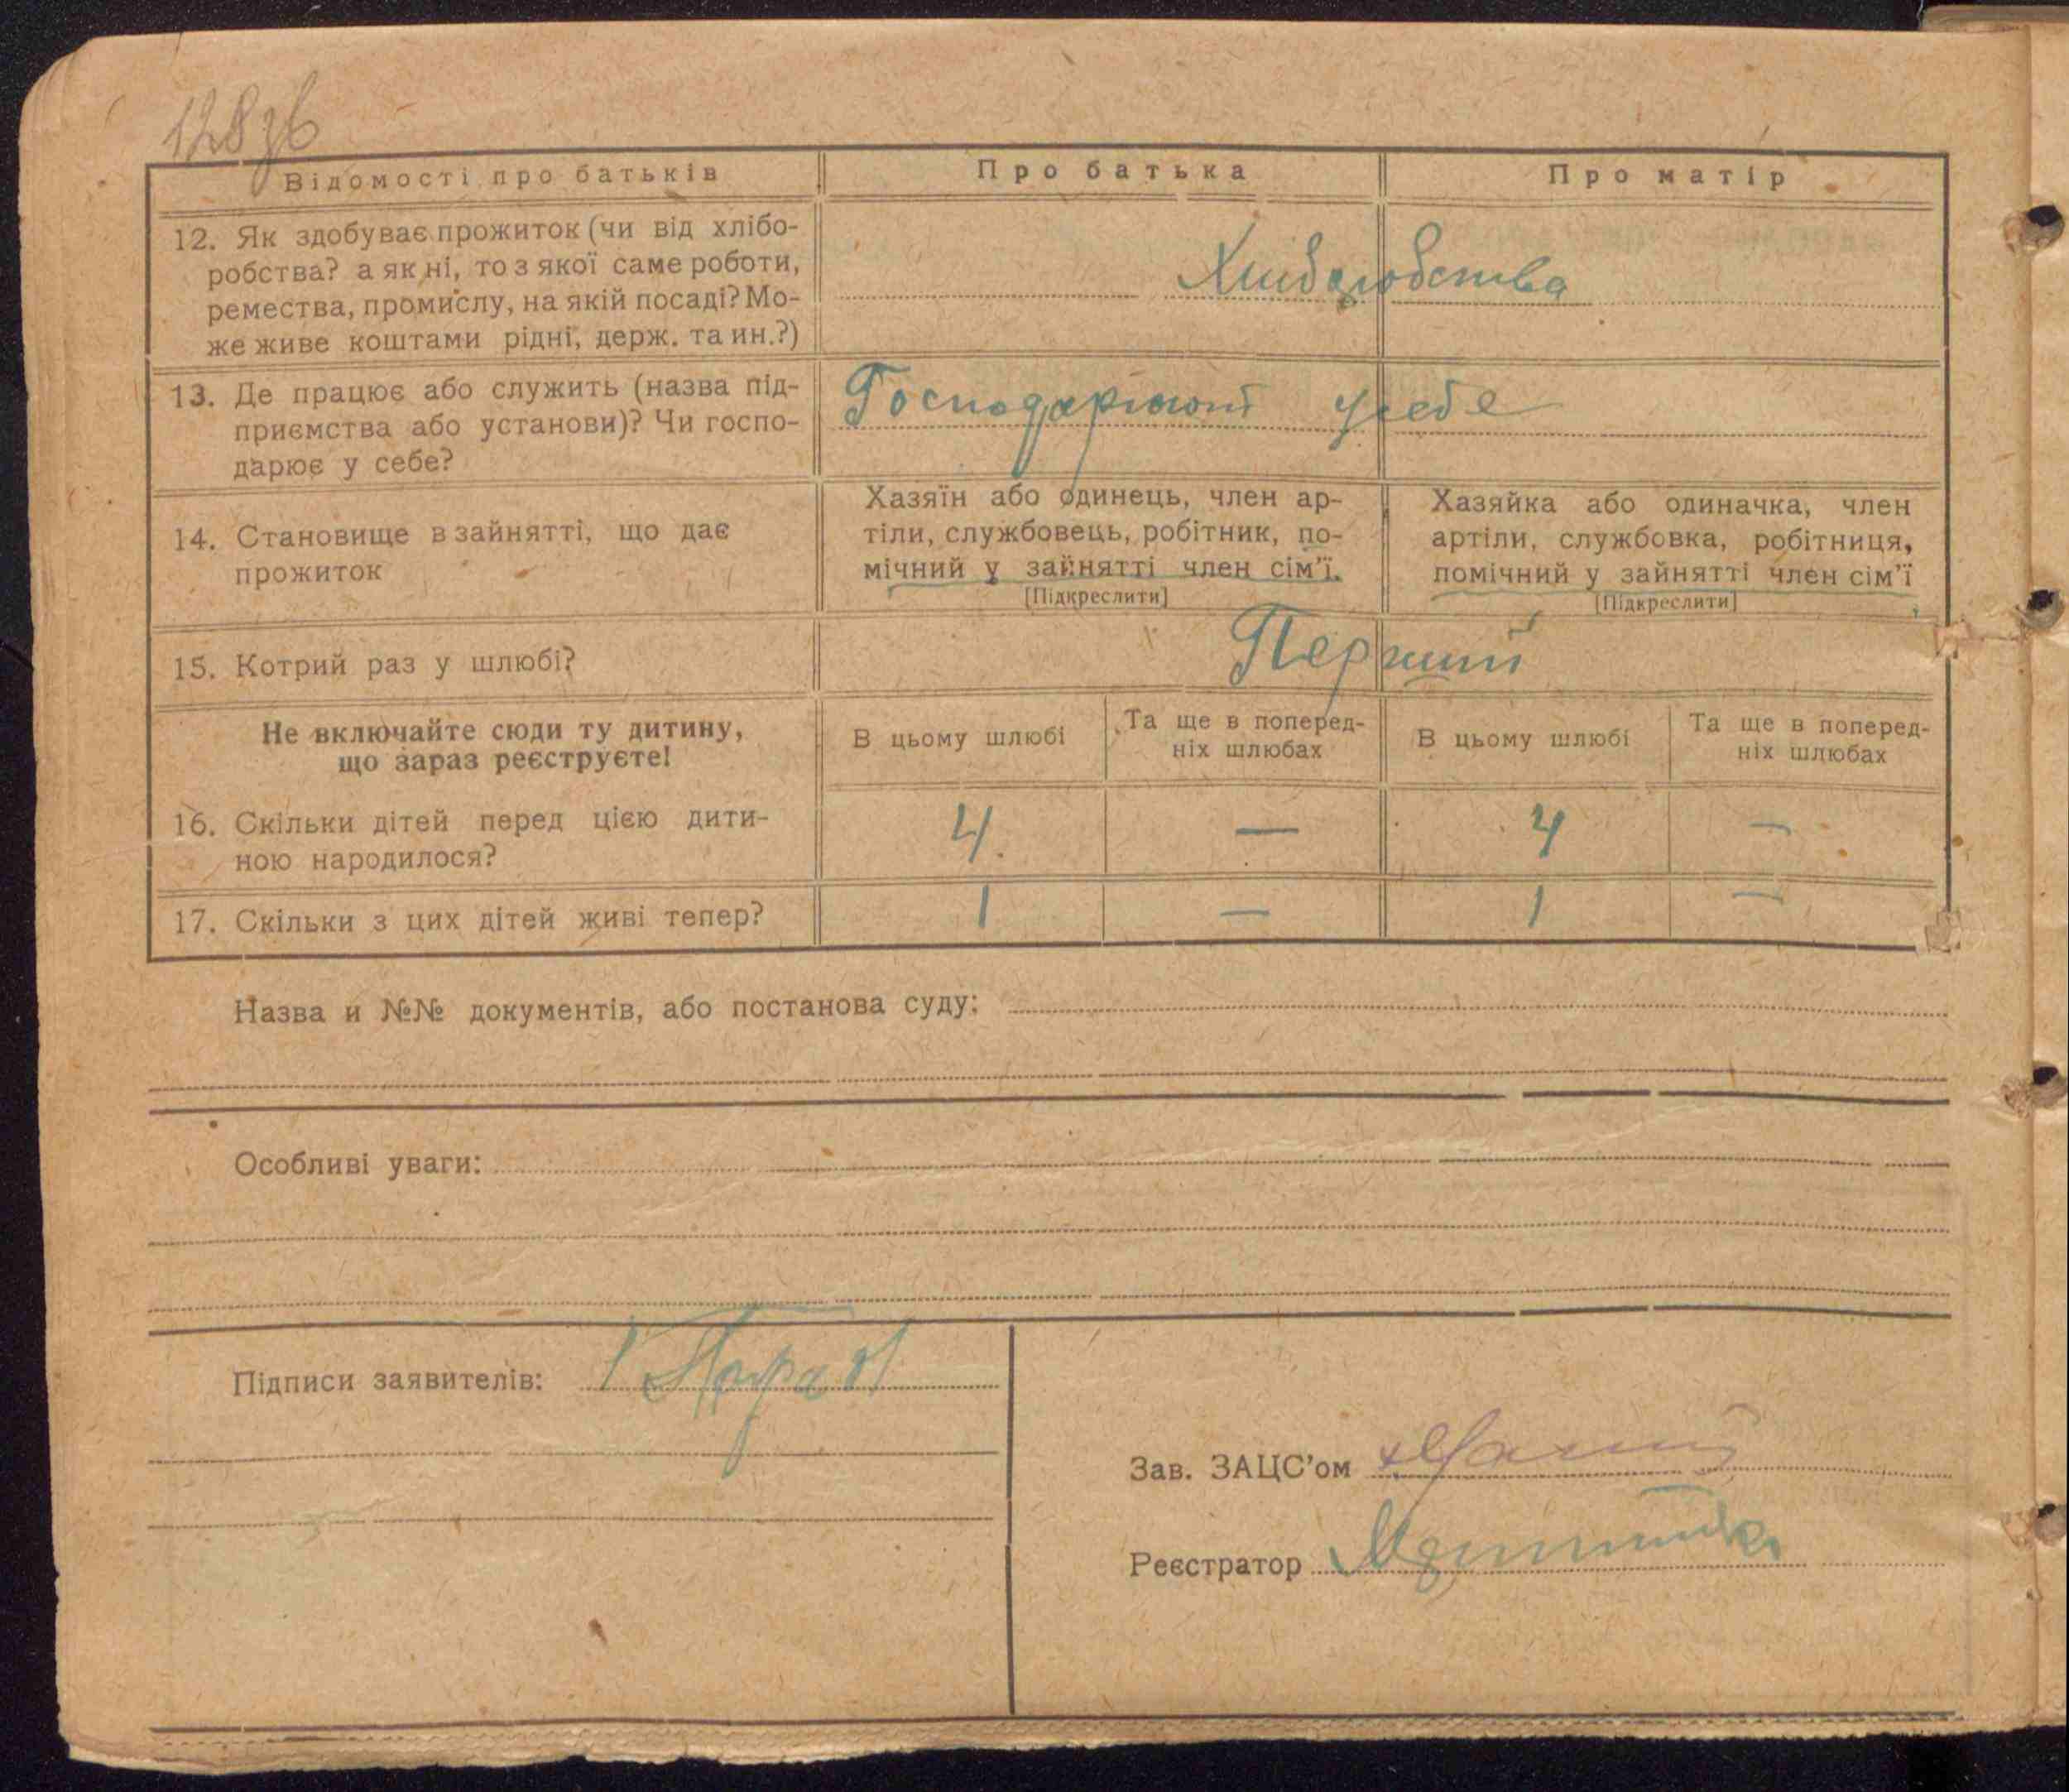 128зв
Відомості про батьків
Про батька
Про матір
12. Як здобуває прожиток (чи від хлібо-
робства? а як ні, то з якої саме роботи,
ремества, промислу, на якій посаді? Мо-
же живе коштами рідні, держ. та ин.?)
Хлібаробства
13. Де працює або служить (назва під-
приємства або установи)? Чи госпо-
дарює у себе?
Господарюют у себе
14. Становище в зайнятті, що дає
прожиток
Хазяїн або одинець, член ар-
тіли, службовець, робітник, по-
мічний у зайнятті член сім'ї.
[Підкреслити]
Хазяйка або одиначка, член
артіли, службовка, робітниця,
помічний у зайнятті член сім'ї
[Підкреслити]
15. Котрий раз у шлюбі?
Перший
Не включайте сюди ту дитину,
що зараз реєструєте!
В цьому шлюбі
Та ще в поперед-
ніх шлюбах
В цьому шлюбі
Та ще в поперед-
ніх шлюбах
16. Скільки дітей перед цією дити-
ною народилося?
4. — 4 —
17. Скільки з цих дітей живі тепер?
1 — 1 —
Назва и №№ документів, або постанова суду:
Особливі уваги:
Підписи заявителів:
Зав. ЗАЦС'ом
Реєстратор